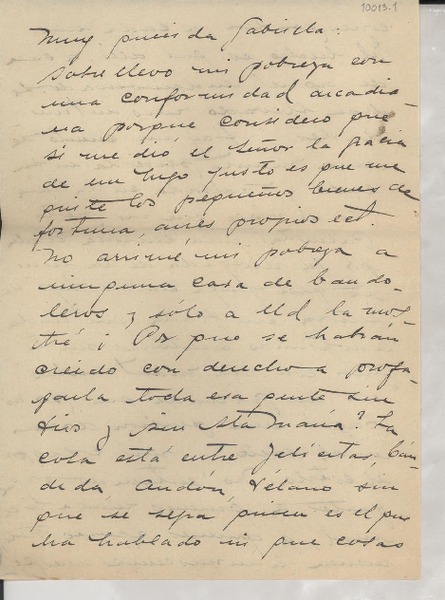 10013.1
Muy querida Gabriela:
Sobrellevo mi pobreza con
una conformidad arcadia-
na porque considero que
si me dió el Señor la gracia
de un hijo justo es que me
quite los pequeños bienes de
fortuna, aires propios ect.
No arrimé mi pobreza a
ninguna casa de bando-
leros y sólo a Ud la mos-
tré ¿ Por que se habrán
creido con derecho a propa-
garla toda esa gente sin
Dios y sin Sta María? La
cosa está entre Felicitas, Cán-
dida Andón, Délano sin
que se sepa quien es el que
ha hablado ni que cosas